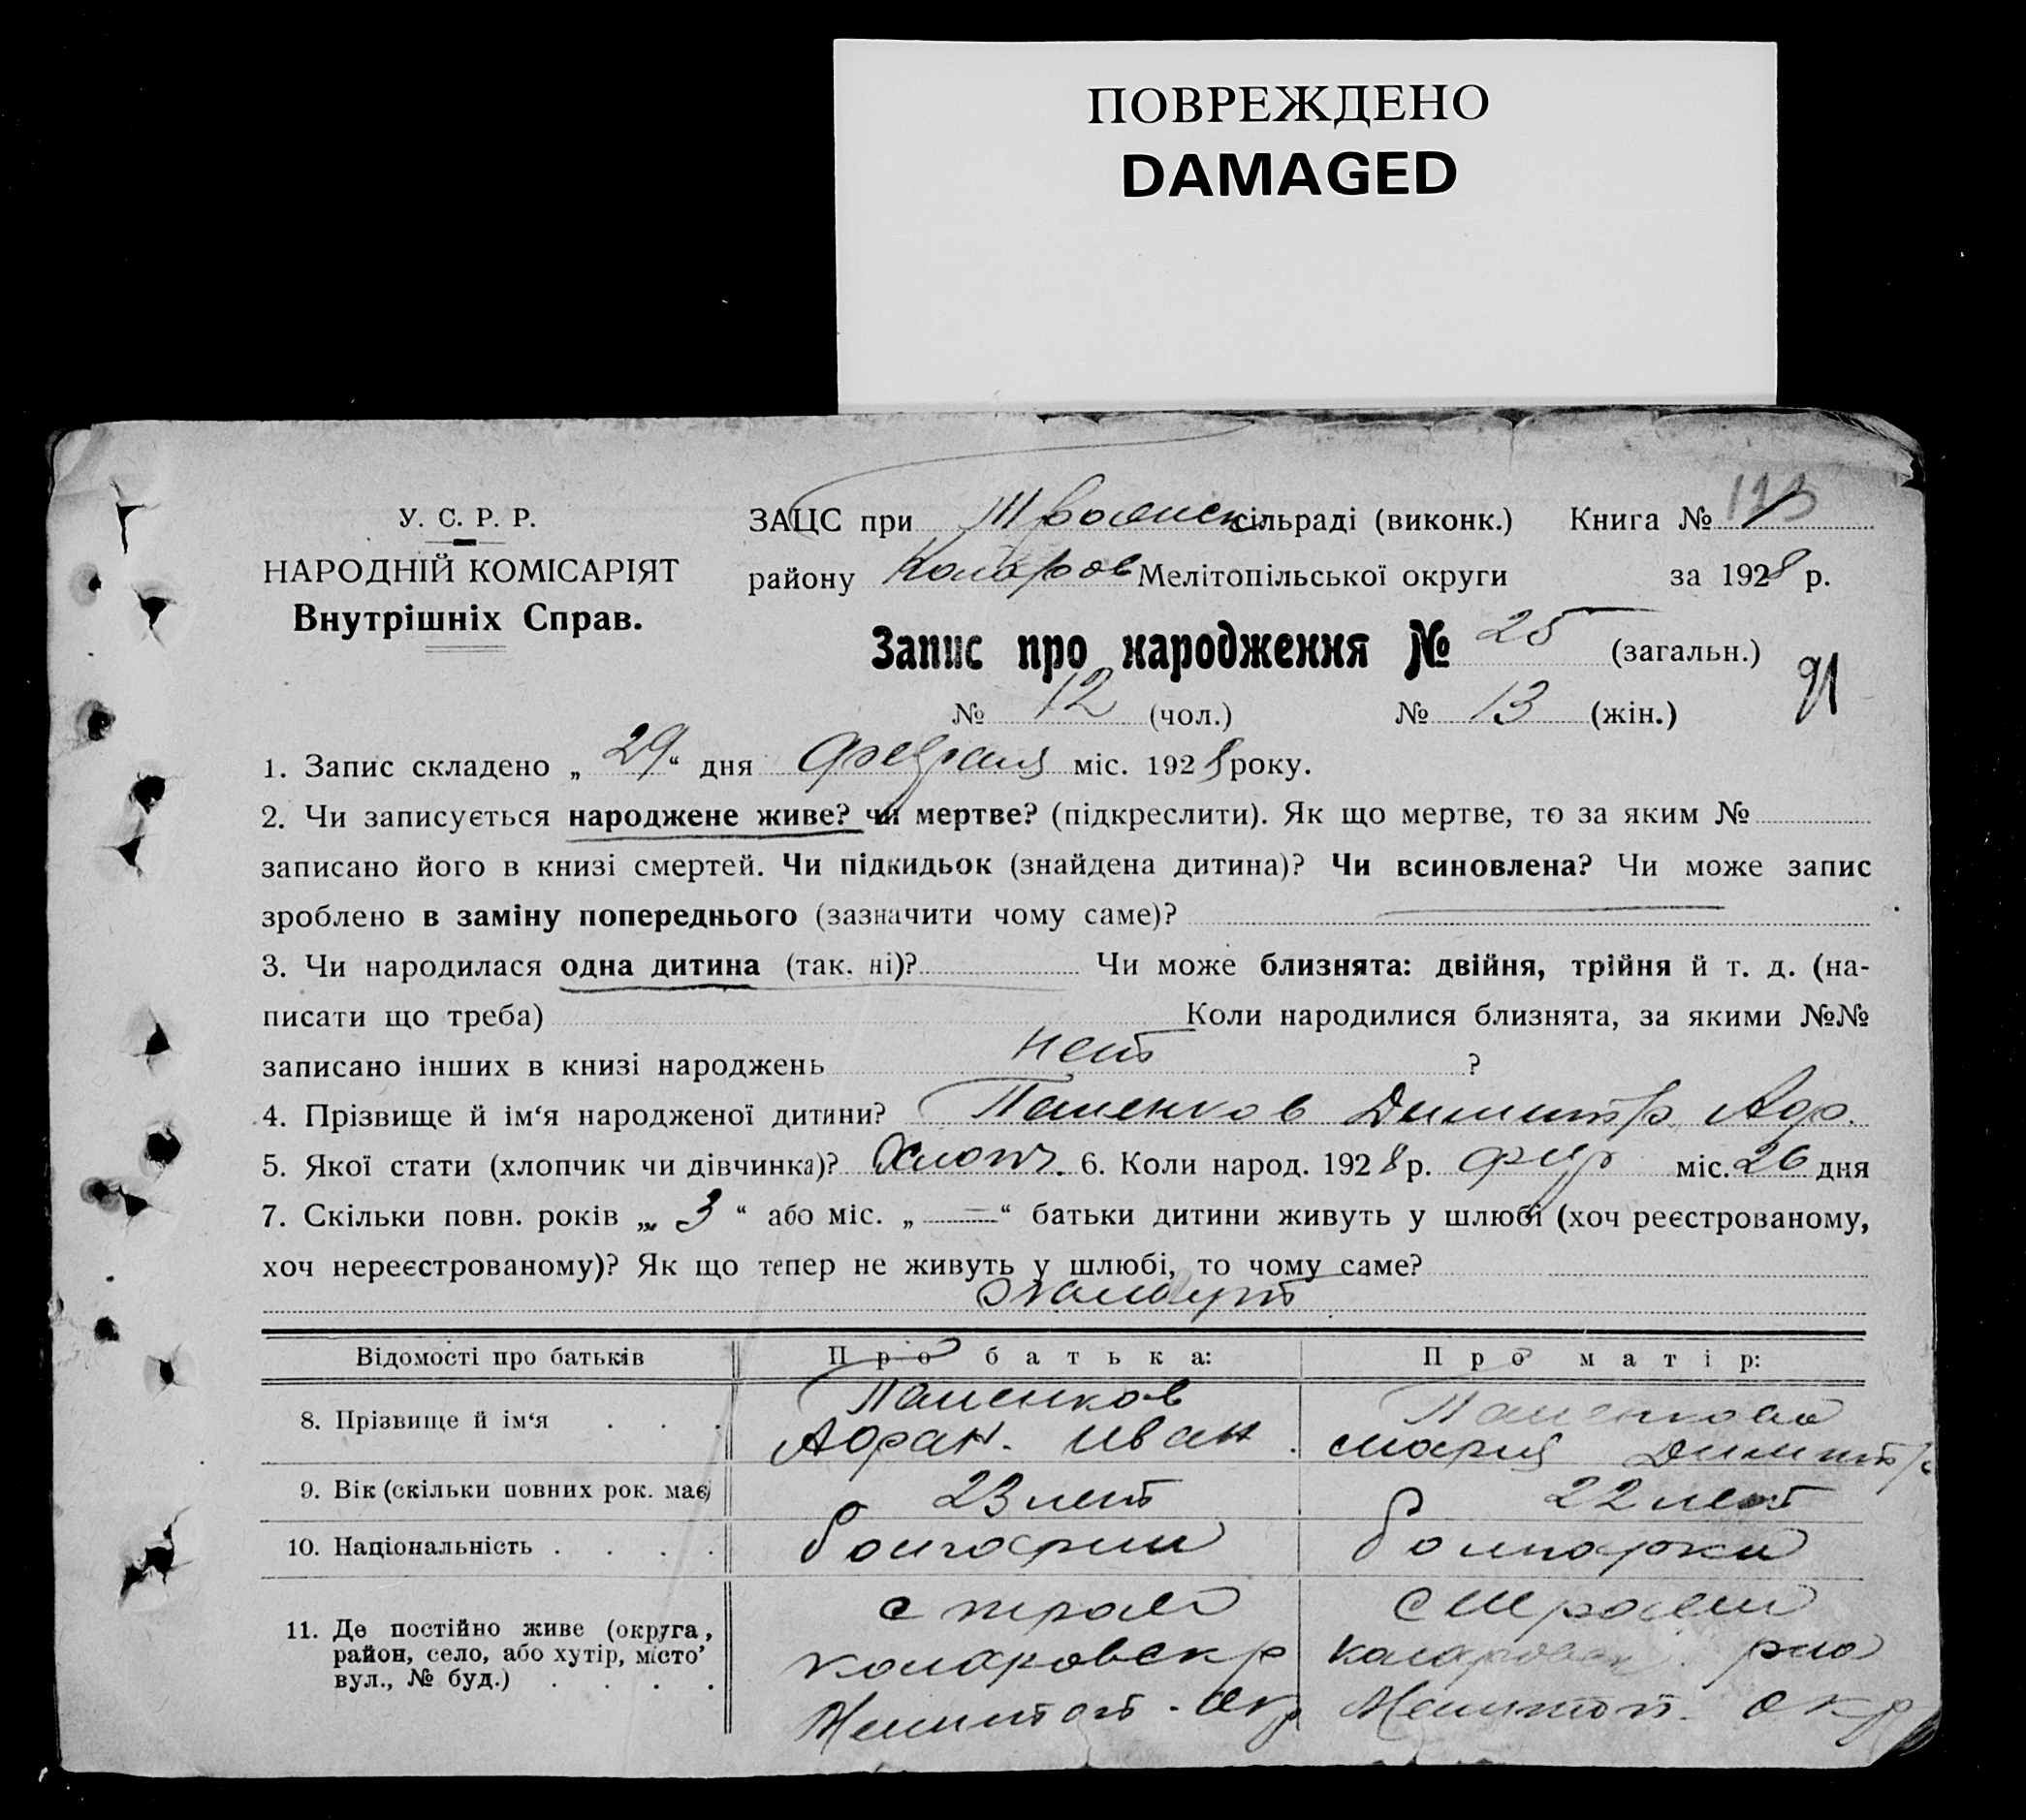 ПОВРЕЖДЕНО
DAMAGED
У. С. Р. Р.
НАРОДНІЙ КОМІСАРІЯТ
Внутрішніх Справ.
ЗАЦС при сільраді (виконк.) Книга №
району Коларов Мелітопільської округи за 1928 р.
Запис про народження № 25 (загальн.)
91
№ 12 (чол.) № 13 (жін.)
1. Запис складено „ 29 “ дня февраля міс. 1928 року.
2. Чи записується народжене живе? чи мертве? (підкреслити). Як що мертве, то за яким №
записано його в книзі смертей. Чи підкидьок (знайдена дитина)? Чи всиновлена? Чи може запис
зроблено в заміну попереднього (зазначити чому саме)?
3. Чи народилася одна дитина (так, ні)? Чи може близнята: двійня, трійня й т. д. (на-
писати що треба) Коли народилися близнята, за якими №№
записано інших в книзі народжень нет ?
4. Прізвище й ім‘я народженої дитини? Димитр
5. Якої стати (хлопчик чи дівчинка)? Хлопч. 6. Коли народ. 1928 р. міс. 26 дня
7. Скільки повн. років „ 3 “ або міс. „ — “ батьки дитини живуть у шлюбі (хоч реєстрованому,
хоч нереєстрованому)? Як що тепер не живуть у шлюбі, то чому саме?
Відомості про батьків Про батька: Про матір:
8. Прізвище й ім‘я . . .
Иван. Мария Димитр
9. Вік (скільки повних рок. має) 23 лет 22 лет
10. Національність . . . . болгарин болгарка
11. Де постійно живе (округа,
район, село, або хутір, місто
вул., № буд.) . . . .
коларовск р коларовск. рна
Мелитоп. окр Мелитоп. окр